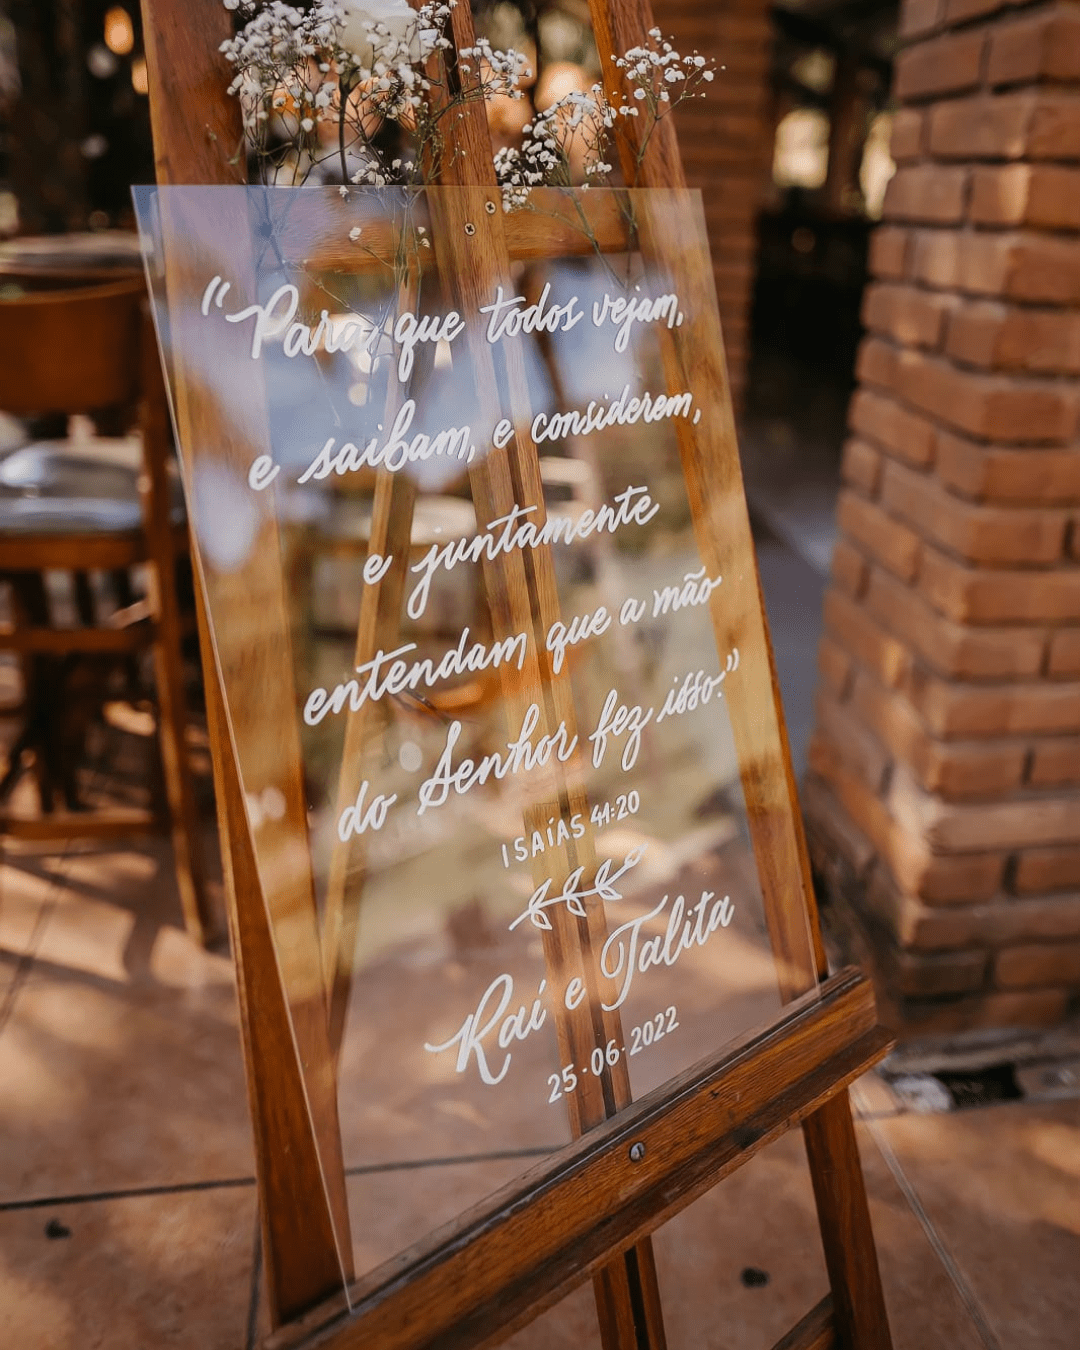 “Para que todos vejam,
e saibam, e considerem,
e juntamente
entendam que a mão
do Senhor fez isso.”
ISAÍAS 41:20
Raí e Talita
25·06·2022